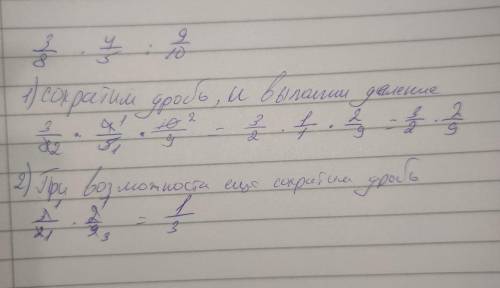 3/8 · 4/5 : 9/10
1) сократим дробь, и выполним деление
3/8 2 · 4 1/5 1 · 10 2/9 = 3/2 · 1/1 · 2/9 = 3/2 · 2/9
2) При возможности еще сократим дробь
3 1/2 1 · 2 1/9 3 = 1/3